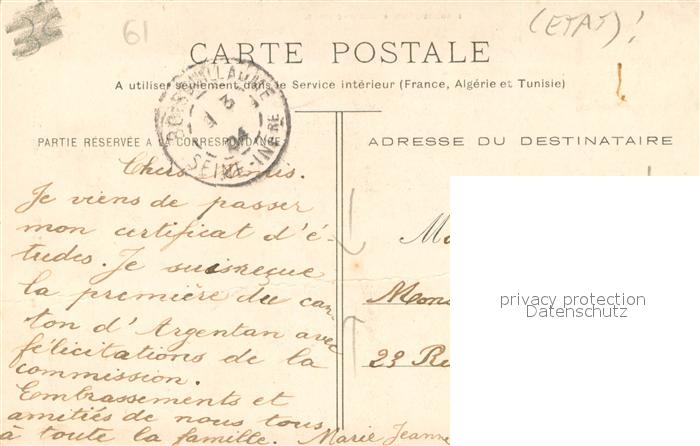 61
(ETAT)!
CARTE POSTALE
A utiliser seulement dans le Service intérieur (France, Algérie et Tunisie)
BOISGUILLAUME
SEINE-INFRE
PARTIE RÉSERVÉE A LA CORRESPONDANCE
ADRESSE DU DESTINATAIRE
Je viens de passer
mon certificat d'é-
tudes. Je suis reçue
la première du can
ton d'Argentan avec
félicitations de la
commission.
Embrassements et
amitiés de nous tous
à toute la famille. Marie Jeanne
Ma
Mons
23 Ru
privacy protection
Datenschutz